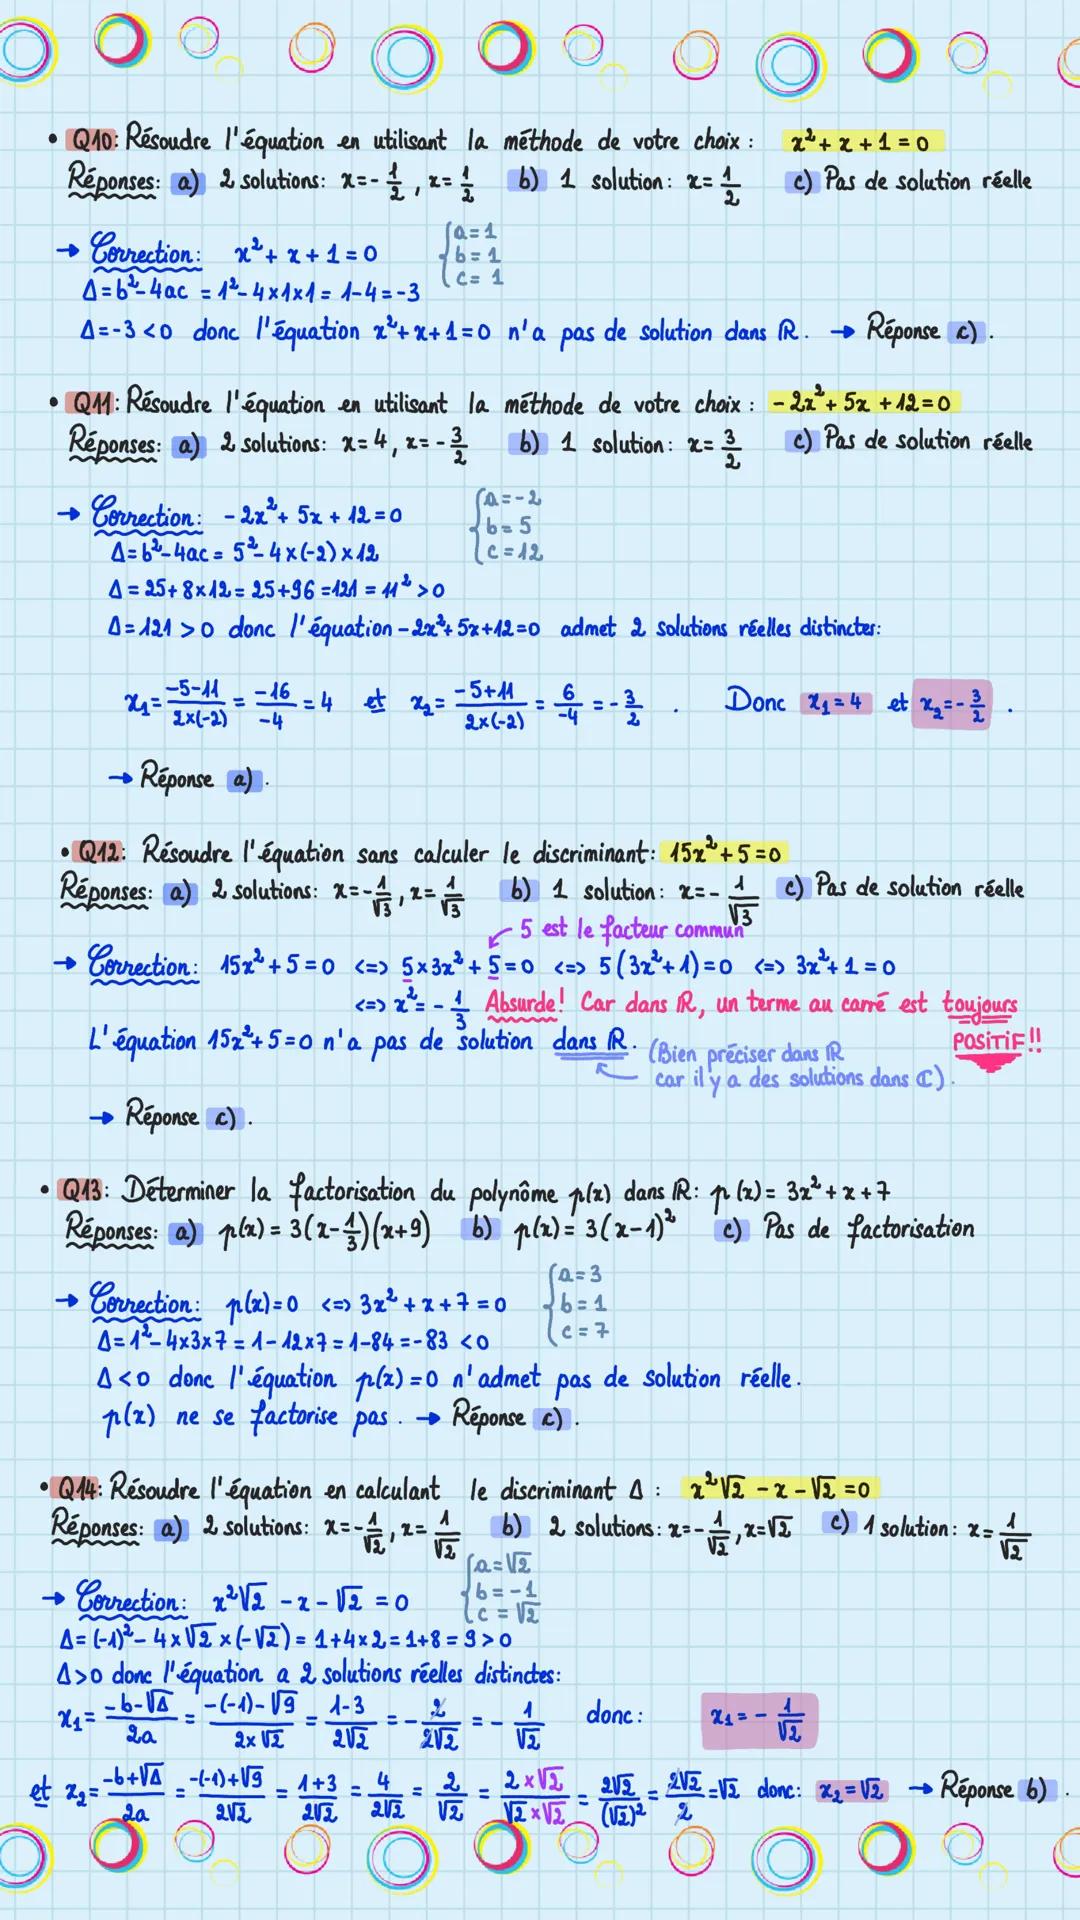 • Q10: Résoudre l'équation en utilisant la méthode de votre choix : x² + x + 1 = 0
Réponses: a) 2 solutions: x = -1/2, x = 1/2 b) 1 solution: x = 1/2 c) Pas de solution réelle
→ Correction: x² + x + 1 = 0 { a = 1 b = 1 c = 1
Δ = b² - 4ac = 1² - 4×1×1 = 1 - 4 = -3
Δ = -3 < 0 donc l'équation x² + x + 1 = 0 n'a pas de solution dans ℝ. → Réponse c).
• Q11: Résoudre l'équation en utilisant la méthode de votre choix : -2x² + 5x + 12 = 0
Réponses: a) 2 solutions: x = 4, x = -3/2 b) 1 solution: x = 3/2 c) Pas de solution réelle
→ Correction: -2x² + 5x + 12 = 0 { a = -2 b = 5 c = 12
Δ = b² - 4ac = 5² - 4×(-2)×12
Δ = 25 + 8×12 = 25 + 96 = 121 = 11² > 0
Δ = 121 > 0 donc l'équation -2x² + 5x + 12 = 0 admet 2 solutions réelles distinctes:
x₁ = (-5-11)/(2×(-2)) = -16/-4 = 4 et x₂ = (-5+11)/(2×(-2)) = 6/-4 = -3/2 . Donc x₁ = 4 et x₂ = -3/2 .
→ Réponse a).
• Q12: Résoudre l'équation sans calculer le discriminant: 15x² + 5 = 0
Réponses: a) 2 solutions: x = -1/√3, x = 1/√3 b) 1 solution: x = -1/√3 c) Pas de solution réelle
5 est le facteur commun
→ Correction: 15x² + 5 = 0 <=> 5×3x² + 5 = 0 <=> 5(3x² + 1) = 0 <=> 3x² + 1 = 0
<=> x² = -1/3 Absurde! Car dans ℝ, un terme au carré est toujours
POSITIF!!
L'équation 15x² + 5 = 0 n'a pas de solution dans ℝ. (Bien préciser dans ℝ
car il y a des solutions dans ℂ).
→ Réponse c).
• Q13: Déterminer la factorisation du polynôme p(x) dans ℝ: p(x) = 3x² + x + 7
Réponses: a) p(x) = 3(x - 1/3)(x + 9) b) p(x) = 3(x - 1)² c) Pas de factorisation
→ Correction: p(x) = 0 <=> 3x² + x + 7 = 0 { a = 3 b = 1 c = 7
Δ = 1² - 4×3×7 = 1 - 12×7 = 1 - 84 = -83 < 0
Δ < 0 donc l'équation p(x) = 0 n'admet pas de solution réelle.
p(x) ne se factorise pas. → Réponse c).
• Q14: Résoudre l'équation en calculant le discriminant Δ : x²√2 - x - √2 = 0
Réponses: a) 2 solutions: x = -1/√2, x = 1/√2 b) 2 solutions: x = -1/√2, x = √2 c) 1 solution: x = 1/√2
→ Correction: x²√2 - x - √2 = 0 { a = √2 b = -1 c = √2
Δ = (-1)² - 4×√2×(-√2) = 1 + 4×2 = 1 + 8 = 9 > 0
Δ > 0 donc l'équation a 2 solutions réelles distinctes:
x₁ = (-b-√Δ)/2a = (-(-1)-√9)/(2×√2) = (1-3)/(2√2) = -2/(2√2) = -1/√2 donc: x₁ = -1/√2
et x₂ = (-b+√Δ)/2a = (-(-1)+√9)/(2√2) = (1+3)/(2√2) = 4/(2√2) = 2/√2 = (2×√2)/(√2×√2) = 2√2/(√2)² = 2√2/2 = √2 donc: x₂ = √2 → Réponse b).